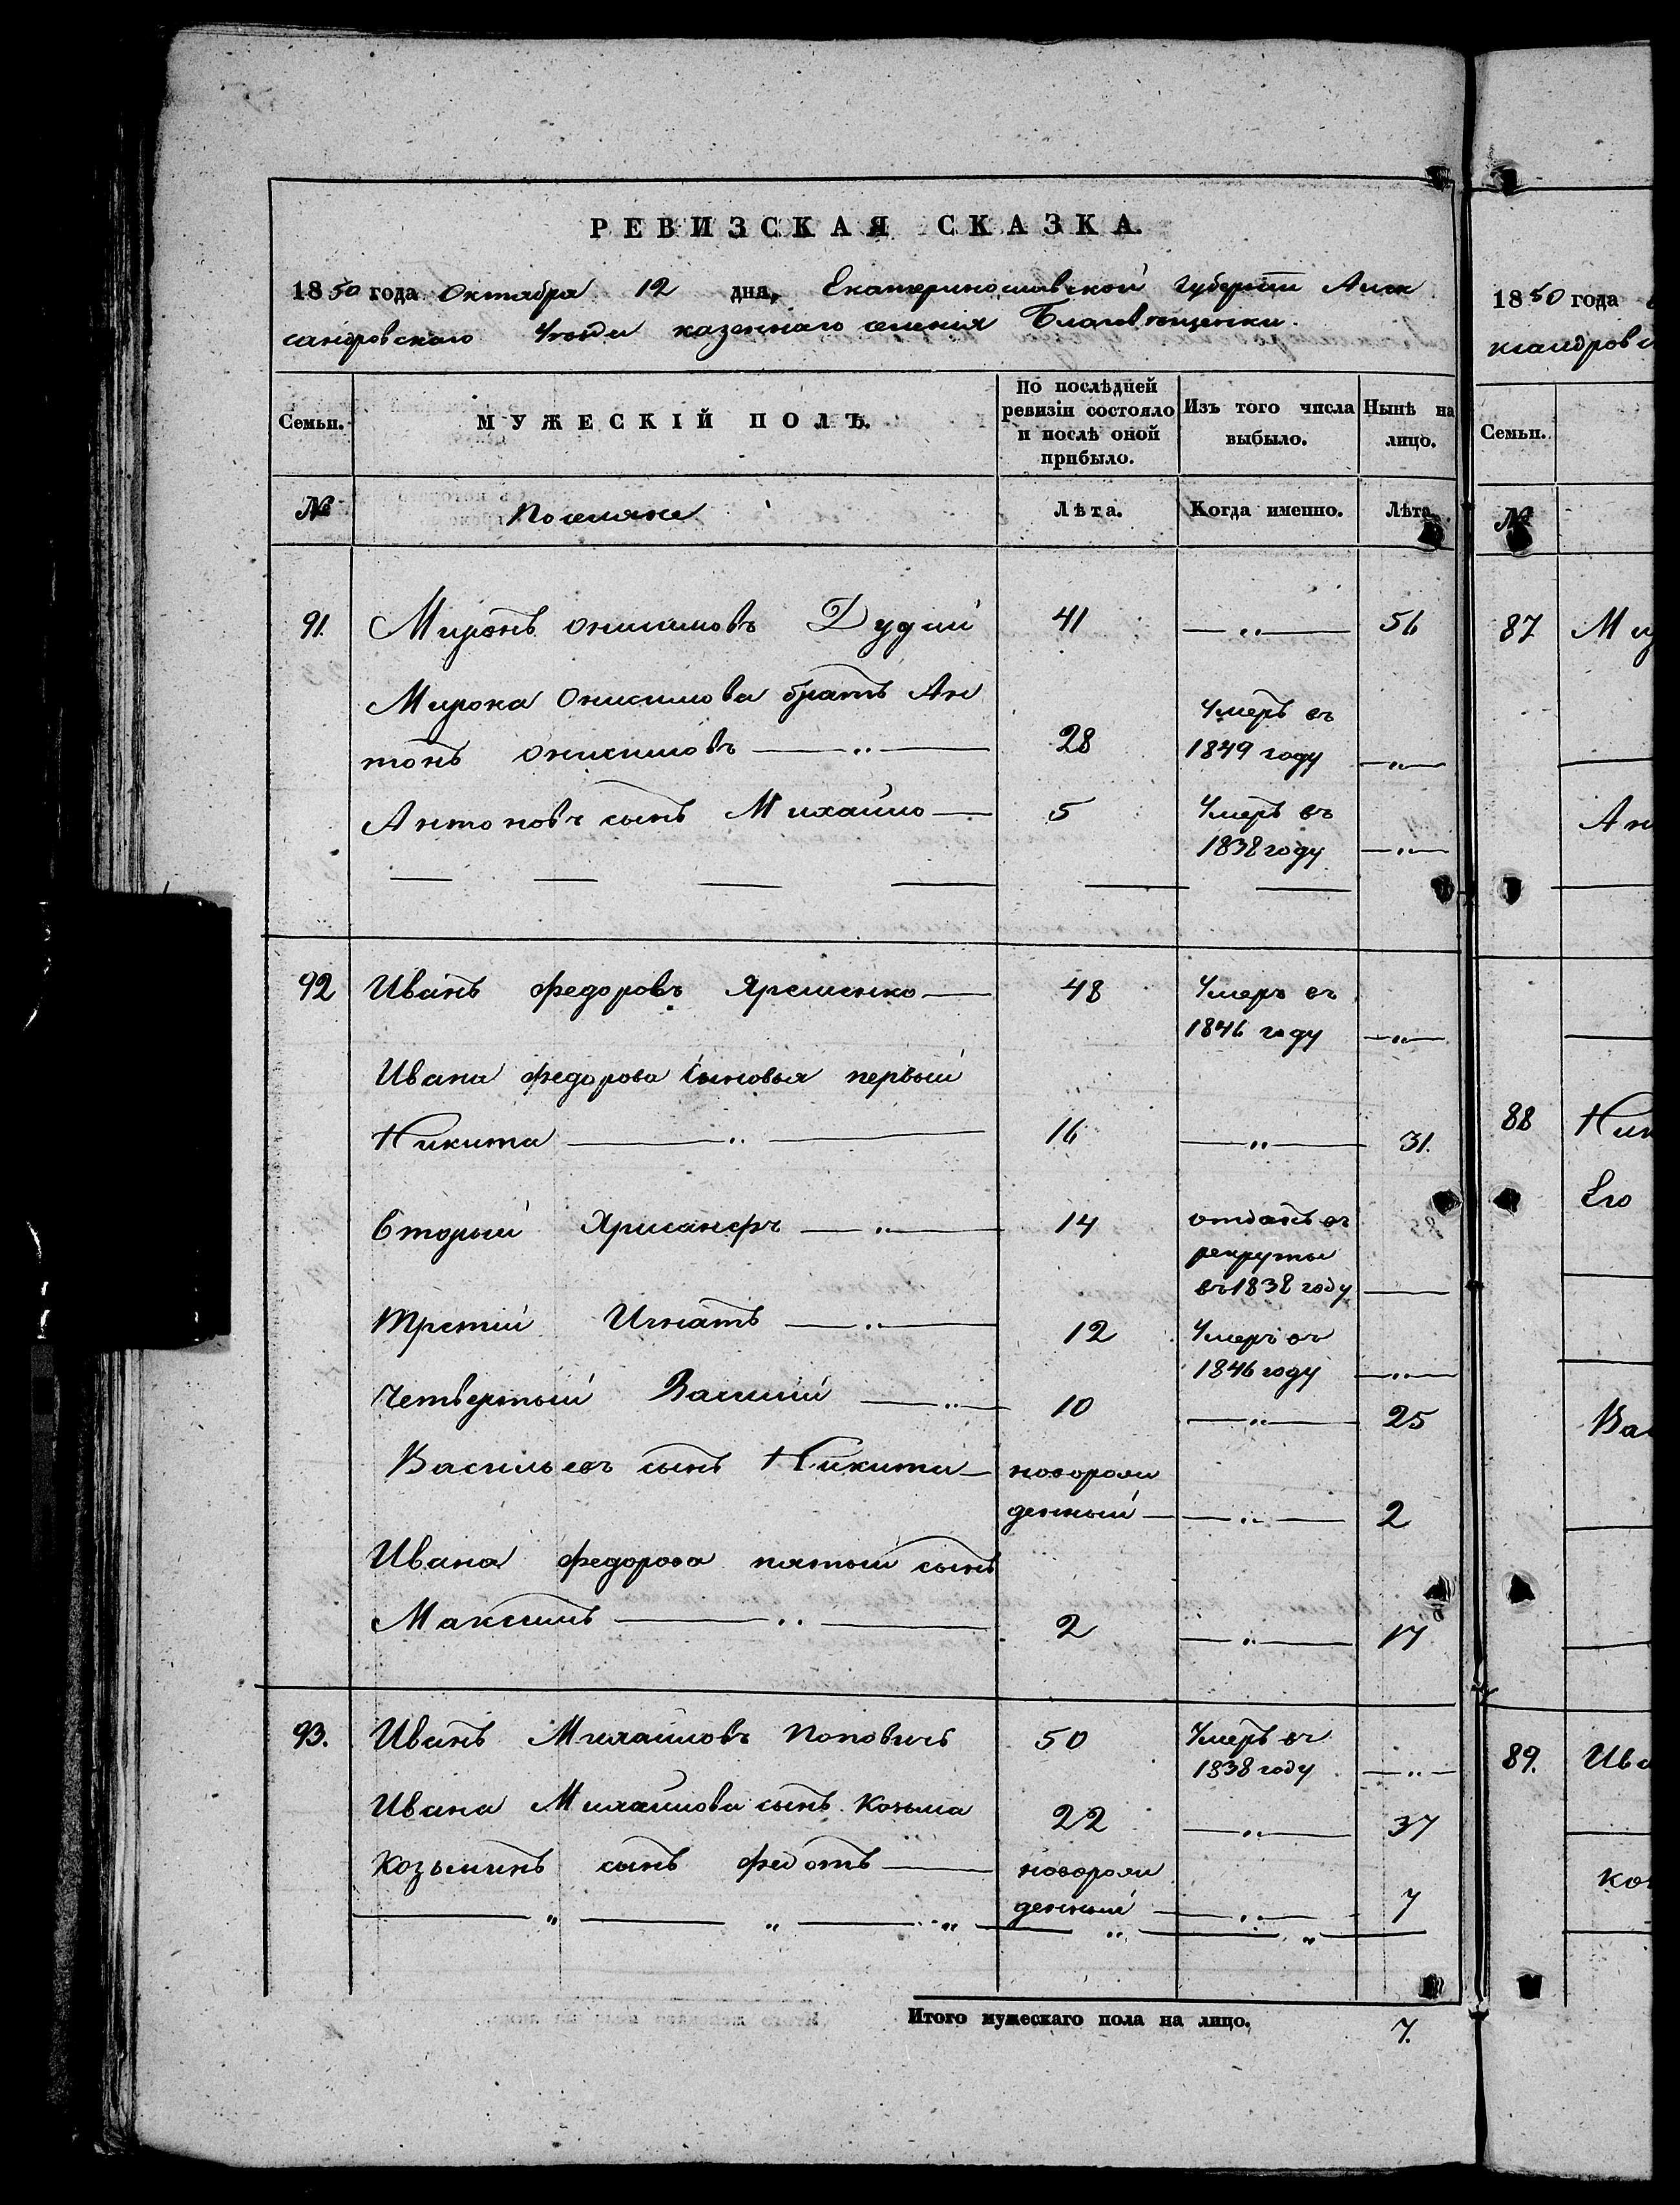 РЕВИЗСКАЯ СКАЗКА.
1850 года Октября 12 дня, Екатеринославской Губернiи Алек
сандровскаго Уезда казеннаго селенiя Благовещенки.
Семьи. МУЖЕСКIЙ ПОЛЪ. По послѣдней ревизiи состояло и послѣ оной прибыло. Изъ того числа выбыло. Нынѣ на лицо.
№ Поселяне Лѣта. Когда именно. Лѣта.
91. Миронъ Онисимовъ Дудчij 41 —„— 56
Мирона Онисимова братъ Ан
тонъ Онисимовъ —„— 28 Умеръ въ 1849 году —„—
Антоновъ сынъ Михайло — 5 Умеръ въ 1838 году —„—
92 Иванъ Федоровъ Яременко — 48 Умеръ въ 1846 году —„—
Ивана Федорова сыновья первый
Никита —„— 16 —„— 31.
Вторый Хрисанфъ —„— 14 отданъ въ рекруты въ 1838 году —
Третiй Игнатъ —„— 12 Умеръ въ 1846 году —„—
Четвертый Василiй —„— 10 —„— 25
Васильевъ сынъ Никита — новорож
денный — —„— 2
Ивана Федорова пятый сынъ
Максимъ —„— 2 —„— 17
93. Иванъ Михайловъ Поповичъ 50 Умеръ въ 1838 году —„—
Ивана Михайлова сынъ Козьма 22 —„— 37
Козьминъ сынъ Федотъ — новорож
денный —„— 7
Итого мужескаго пола на лицо. 7.
1850 года
ксандровс
Семьи.
№
87 Ми
Ан
88 Ник
Его
Ва
89. Ива
Ко